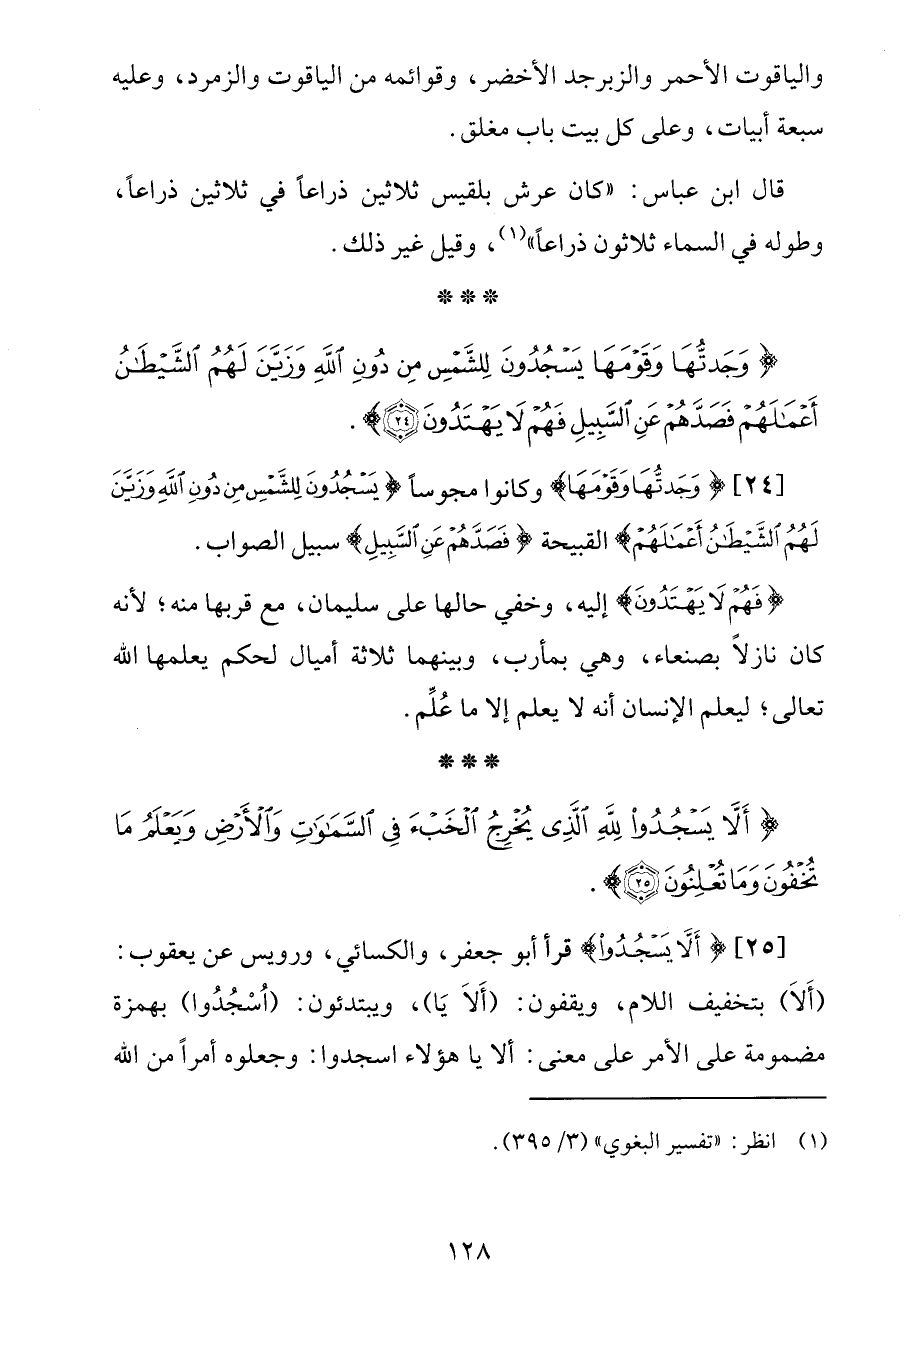 والياقوت الأحمر والزبرجد الأخضر، وقوائمه من الياقوت والزمرد، وعليه
سبعة أبيات، وعلى كل بيت باب مغلق.
قال ابن عباس: «كان عرش بلقيس ثلاثين ذراعاً في ثلاثين ذراعاً،
وطوله في السماء ثلاثون ذراعاً»(١)، وقيل غير ذلك.
* * *
﴿ وَجَدتُّهَا وَقَوْمَهَا يَسْجُدُونَ لِلشَّمْسِ مِن دُونِ ٱللَّهِ وَزَيَّنَ لَهُمُ ٱلشَّيْطَٰنُ
أَعْمَٰلَهُمْ فَصَدَّهُمْ عَنِ ٱلسَّبِيلِ فَهُمْ لَا يَهْتَدُونَ ٢٤ ﴾.
[٢٤] ﴿ وَجَدتُّهَا وَقَوْمَهَا﴾ وكانوا مجوساً ﴿ يَسْجُدُونَ لِلشَّمْسِ مِن دُونِ ٱللَّهِ وَزَيَّنَ
لَهُمُ ٱلشَّيْطَٰنُ أَعْمَٰلَهُمْ﴾ القبيحة ﴿ فَصَدَّهُمْ عَنِ ٱلسَّبِيلِ﴾ سبيل الصواب.
﴿ فَهُمْ لَا يَهْتَدُونَ﴾ إليه، وخفي حالها على سليمان، مع قربها منه؛ لأنه
كان نازلاً بصنعاء، وهي بمأرب، وبينهما ثلاثة أميال لحكم يعلمها الله
تعالى؛ ليعلم الإنسان أنه لا يعلم إلا ما عُلِّم.
* * *
﴿ أَلَّا يَسْجُدُوا۟ لِلَّهِ ٱلَّذِى يُخْرِجُ ٱلْخَبْءَ فِى ٱلسَّمَٰوَٰتِ وَٱلْأَرْضِ وَيَعْلَمُ مَا
تُخْفُونَ وَمَا تُعْلِنُونَ ٢٥ ﴾.
[٢٥] ﴿ أَلَّا يَسْجُدُوا۟﴾ قرأ أبو جعفر، والكسائي، ورويس عن يعقوب:
(أَلَا) بتخفيف اللام، ويقفون: (أَلَا يَا)، ويبتدئون: (أُسْجُدُوا) بهمزة
مضمومة على الأمر على معنى: ألا يا هؤلاء اسجدوا: وجعلوه أمراً من الله
(١) انظر: «تفسير البغوي» (٣/ ٣٩٥).
١٢٨